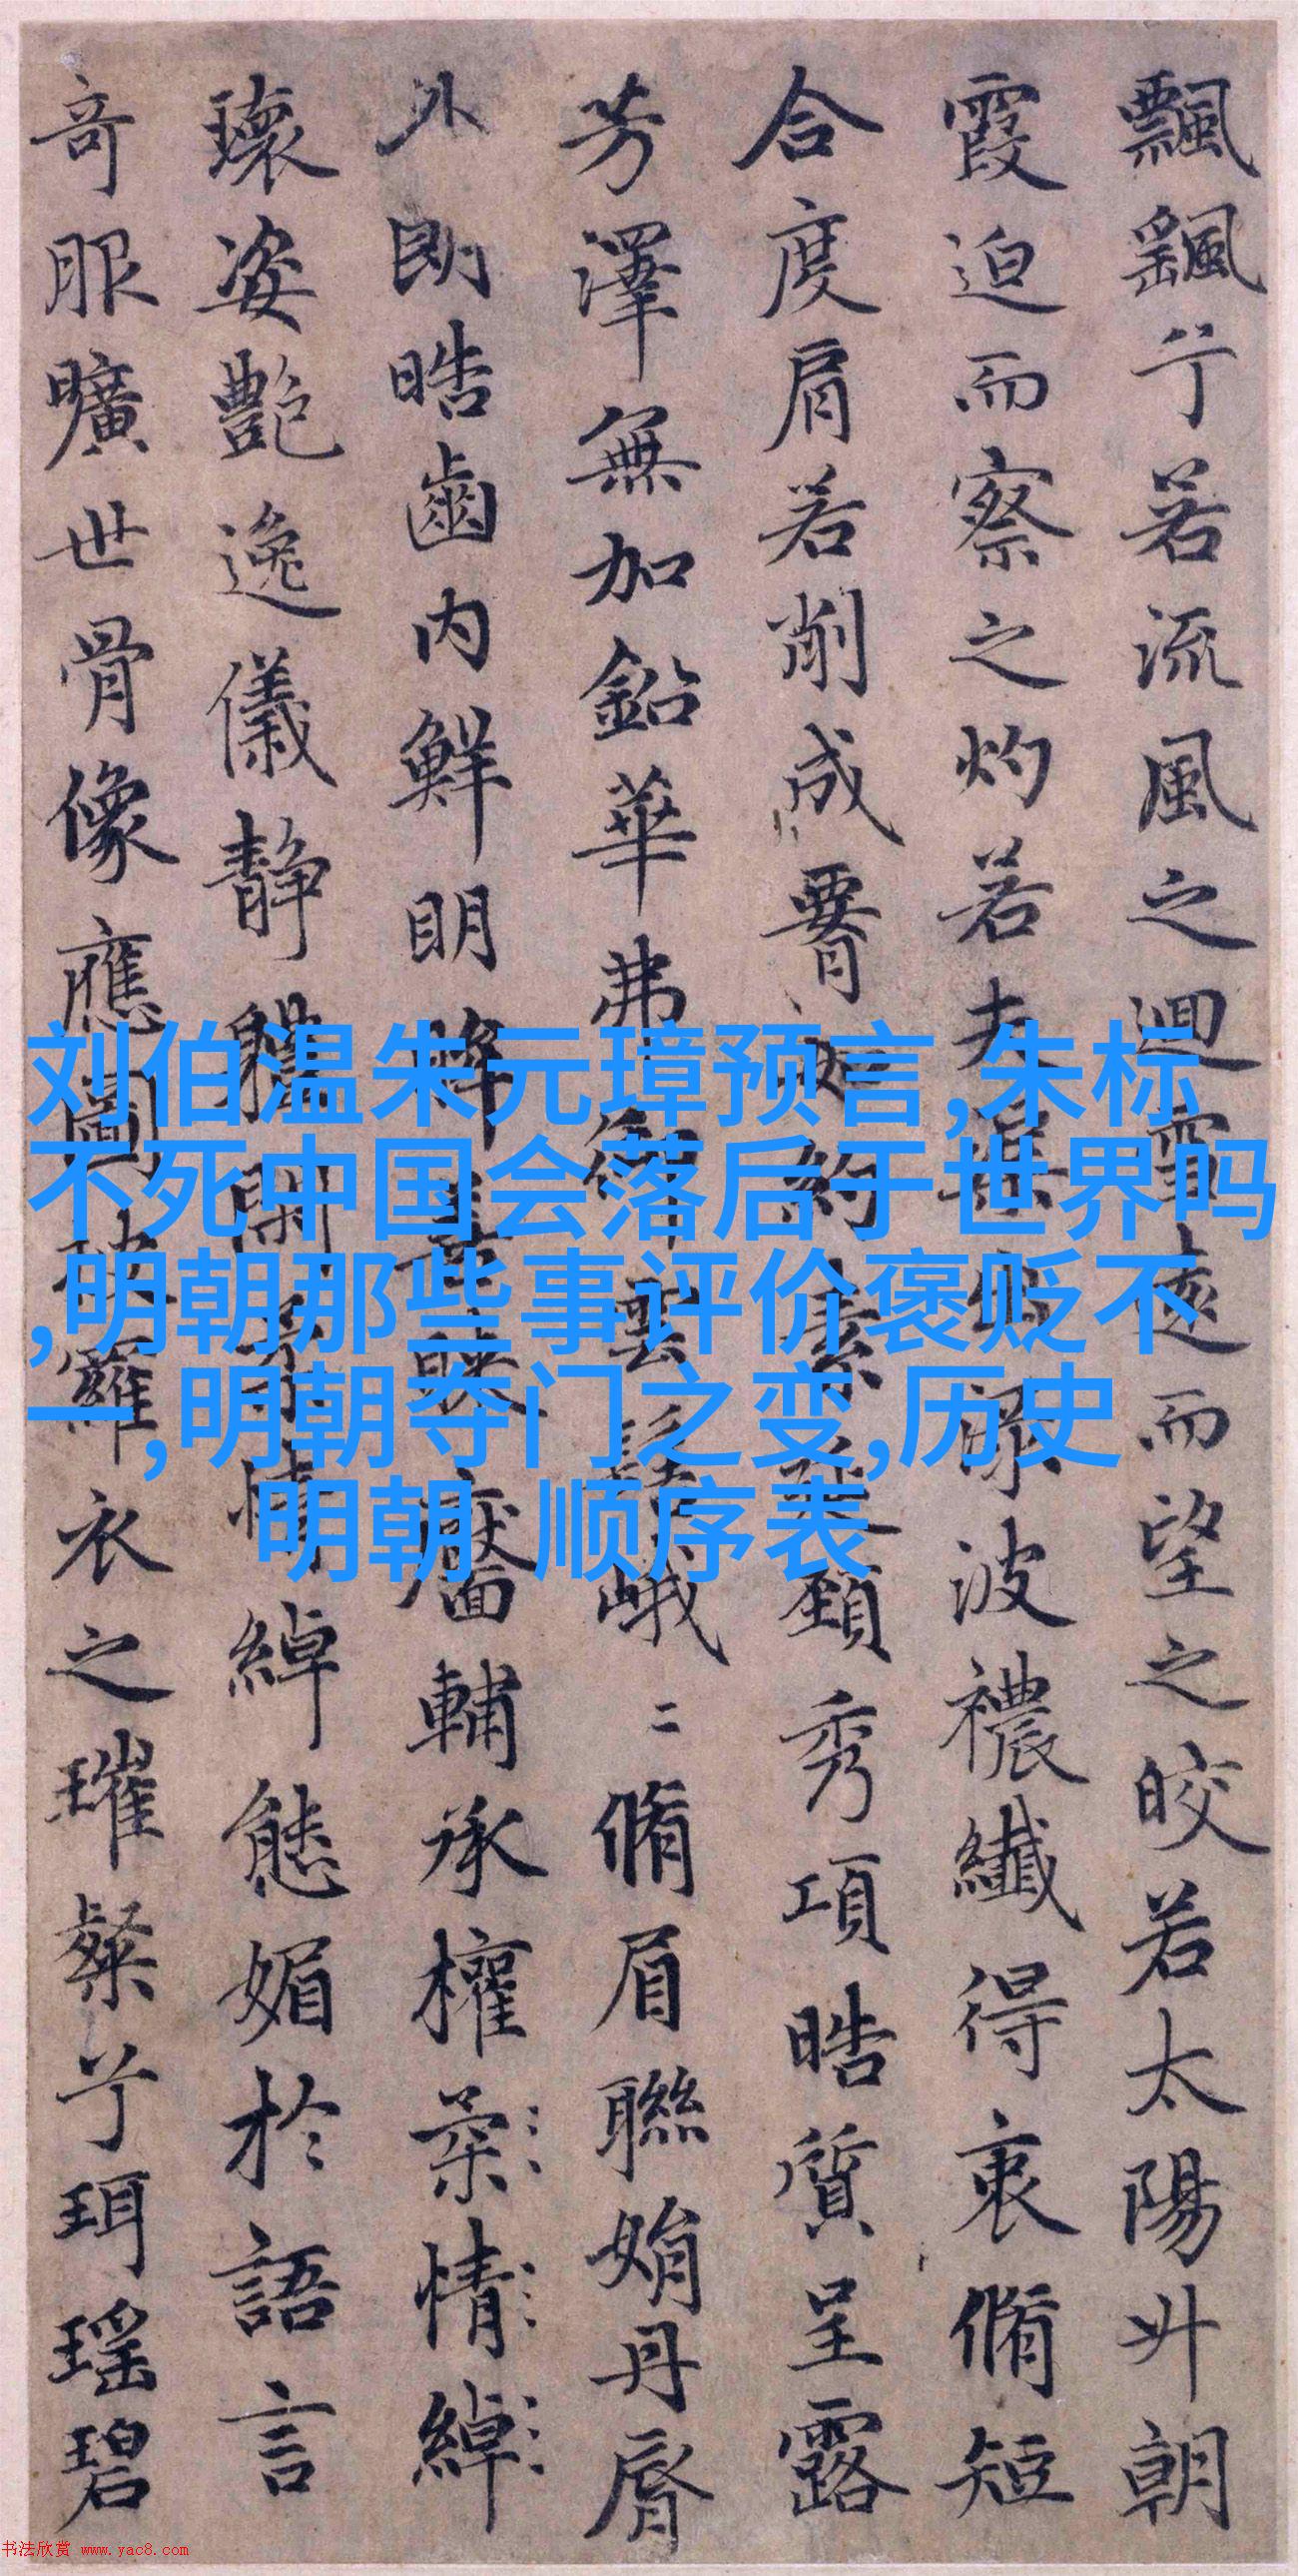 飄颻兮若流風之迴雪遠而望之皎若太陽升朝
霞迫而察之灼若夫蕖出渌波襛纖得衷脩短
合度肩若削成署如約素延頸秀項皓質呈露
芳澤無加鉛華弗御雲髻峨二脩眉聯娟丹脣
外朗皓齒内鮮明眸善睞靨輔承權柔情綽
瓌姿艷逸儀静體閑柔情綽態媚於語言
奇服曠世骨像應圖披羅衣之璀粲兮珥瑶碧
刘伯温朱元璋预言,朱标
不死中国会落后于世界吗
,明朝那些事评价褒贬不
一,明朝夺门之变,历史
明朝 顺序表
书法欣赏 www.yac8.com